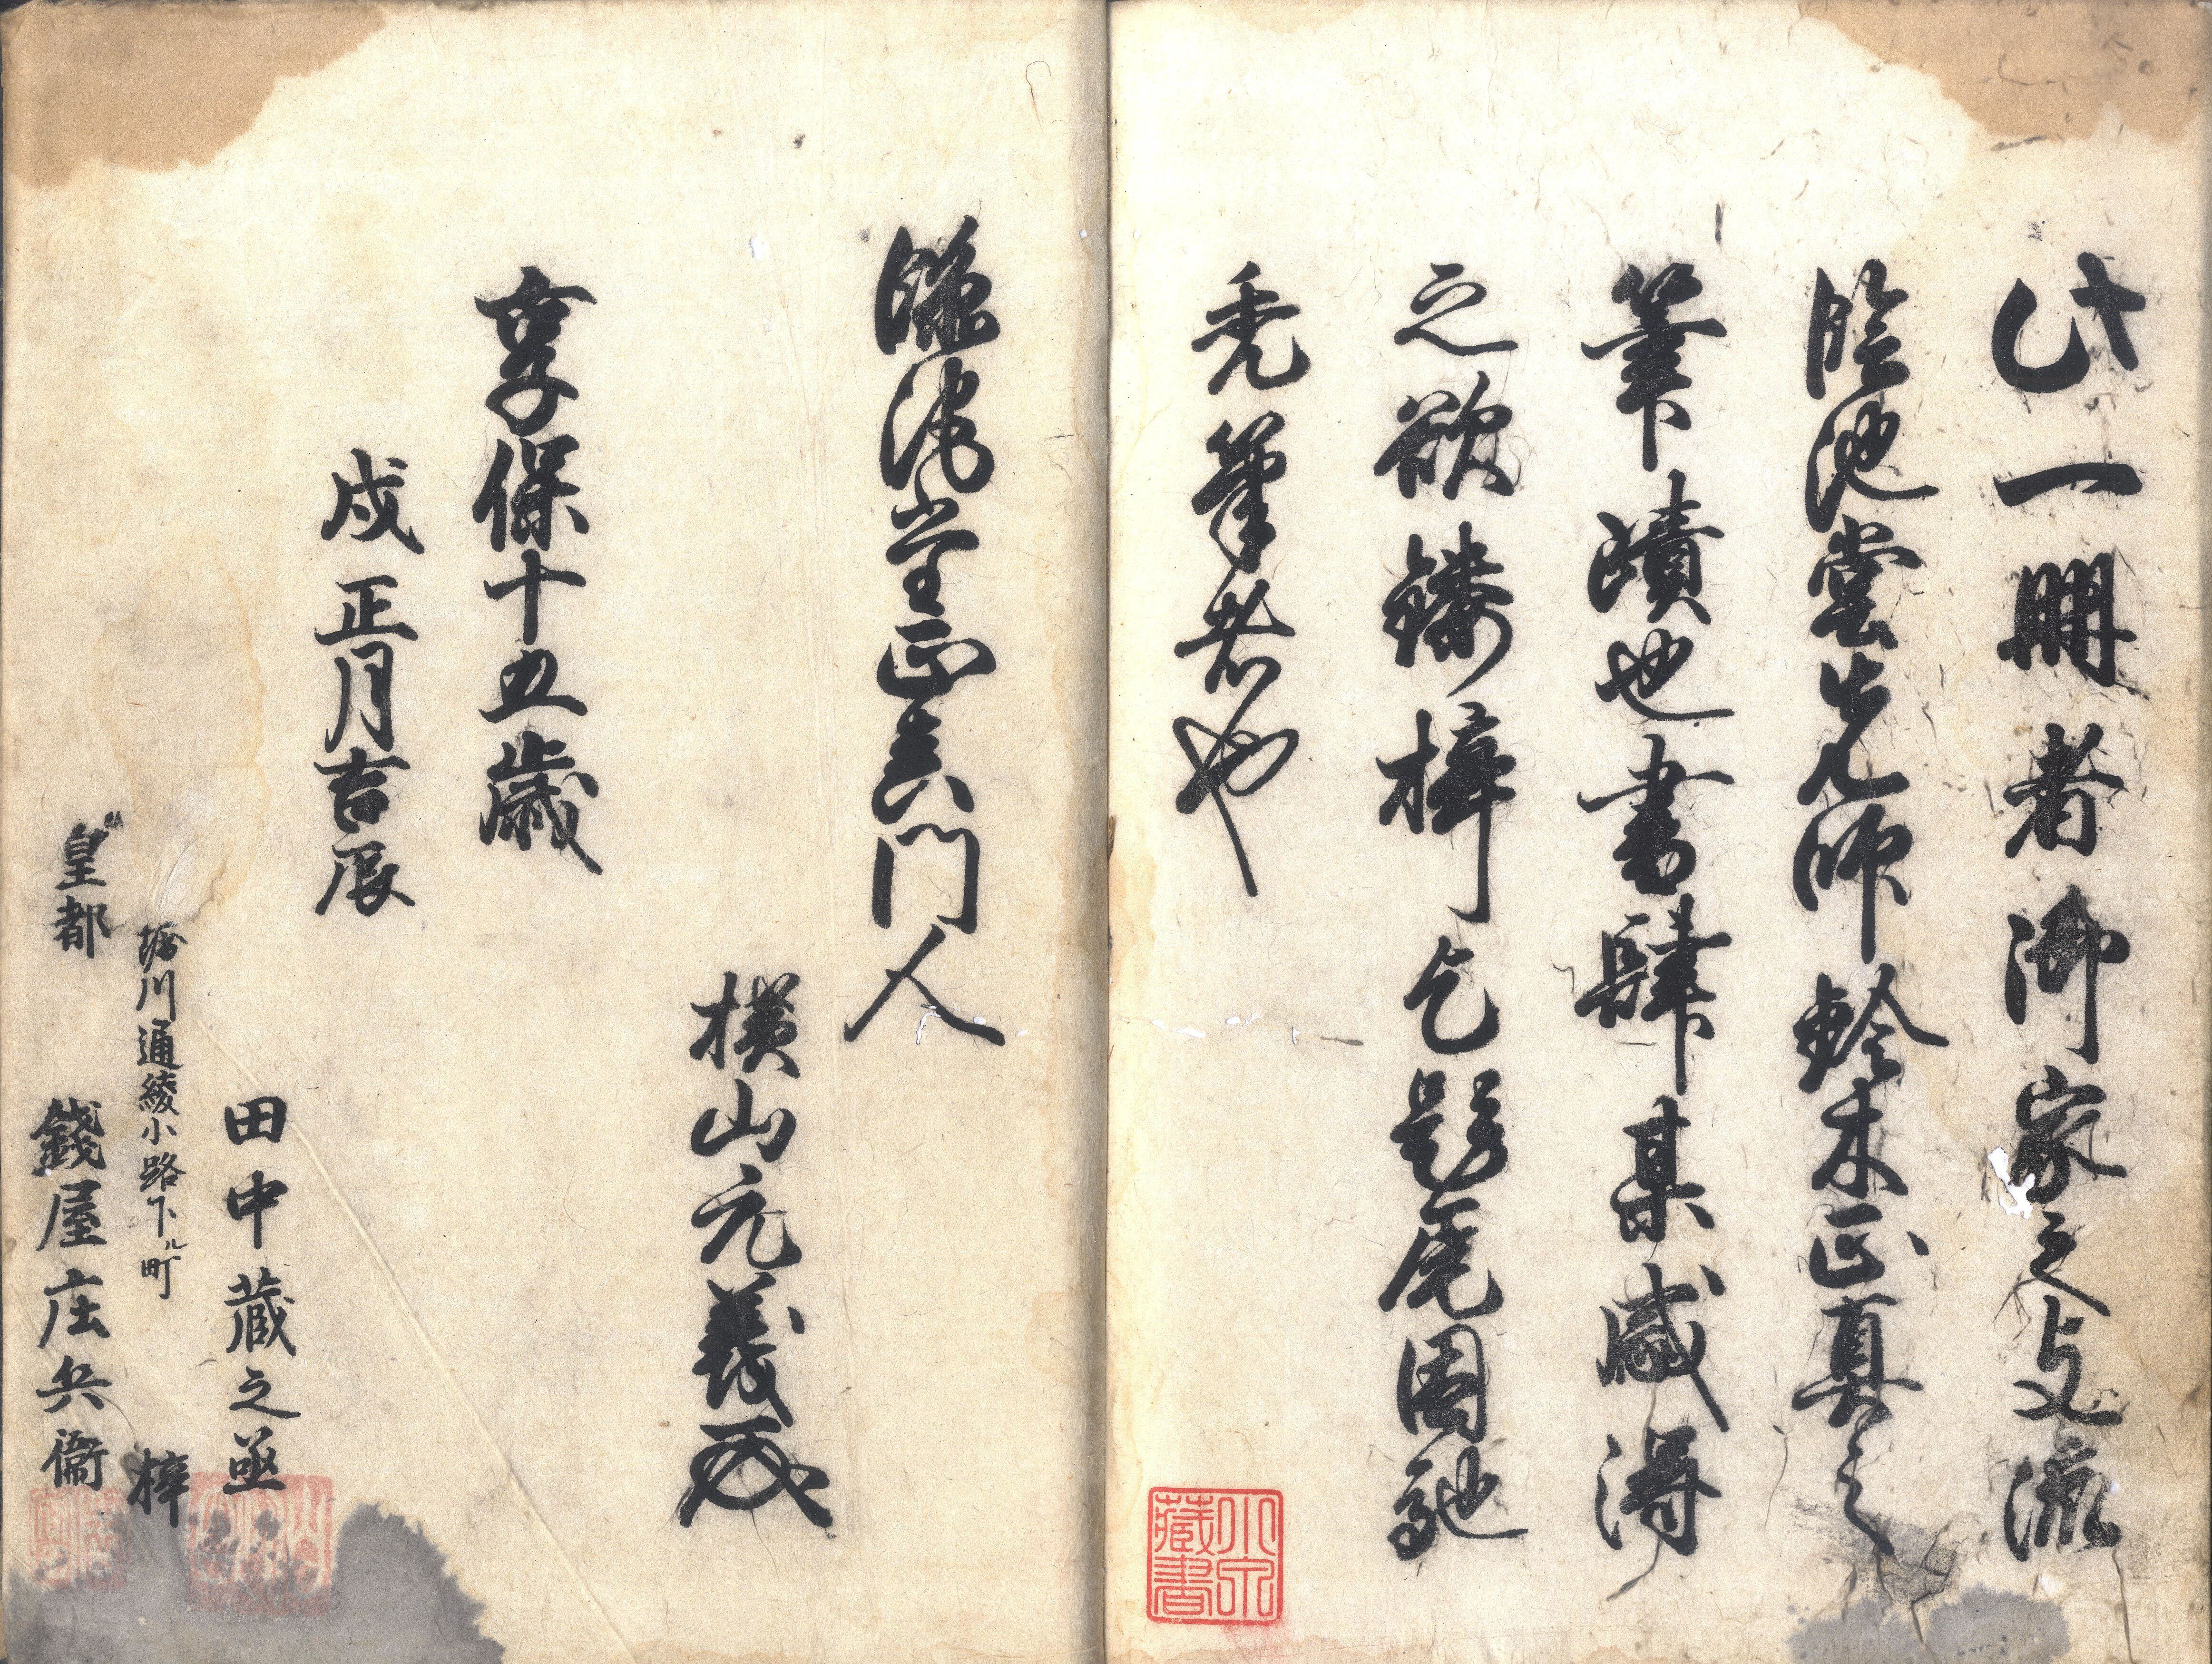 此一冊者御家之上流
臨池堂先師鈴木正真之
筆蹟也書肆某感得
之欲鏤梓乞題尾因馳
禿筆者也
小泉
蔵書
臨池堂正真門人
横山元義
享保十五歳
戌正月吉辰
田中蔵之丞
堀川通綾小路下ル町
梓
皇都 錢屋庄兵衛